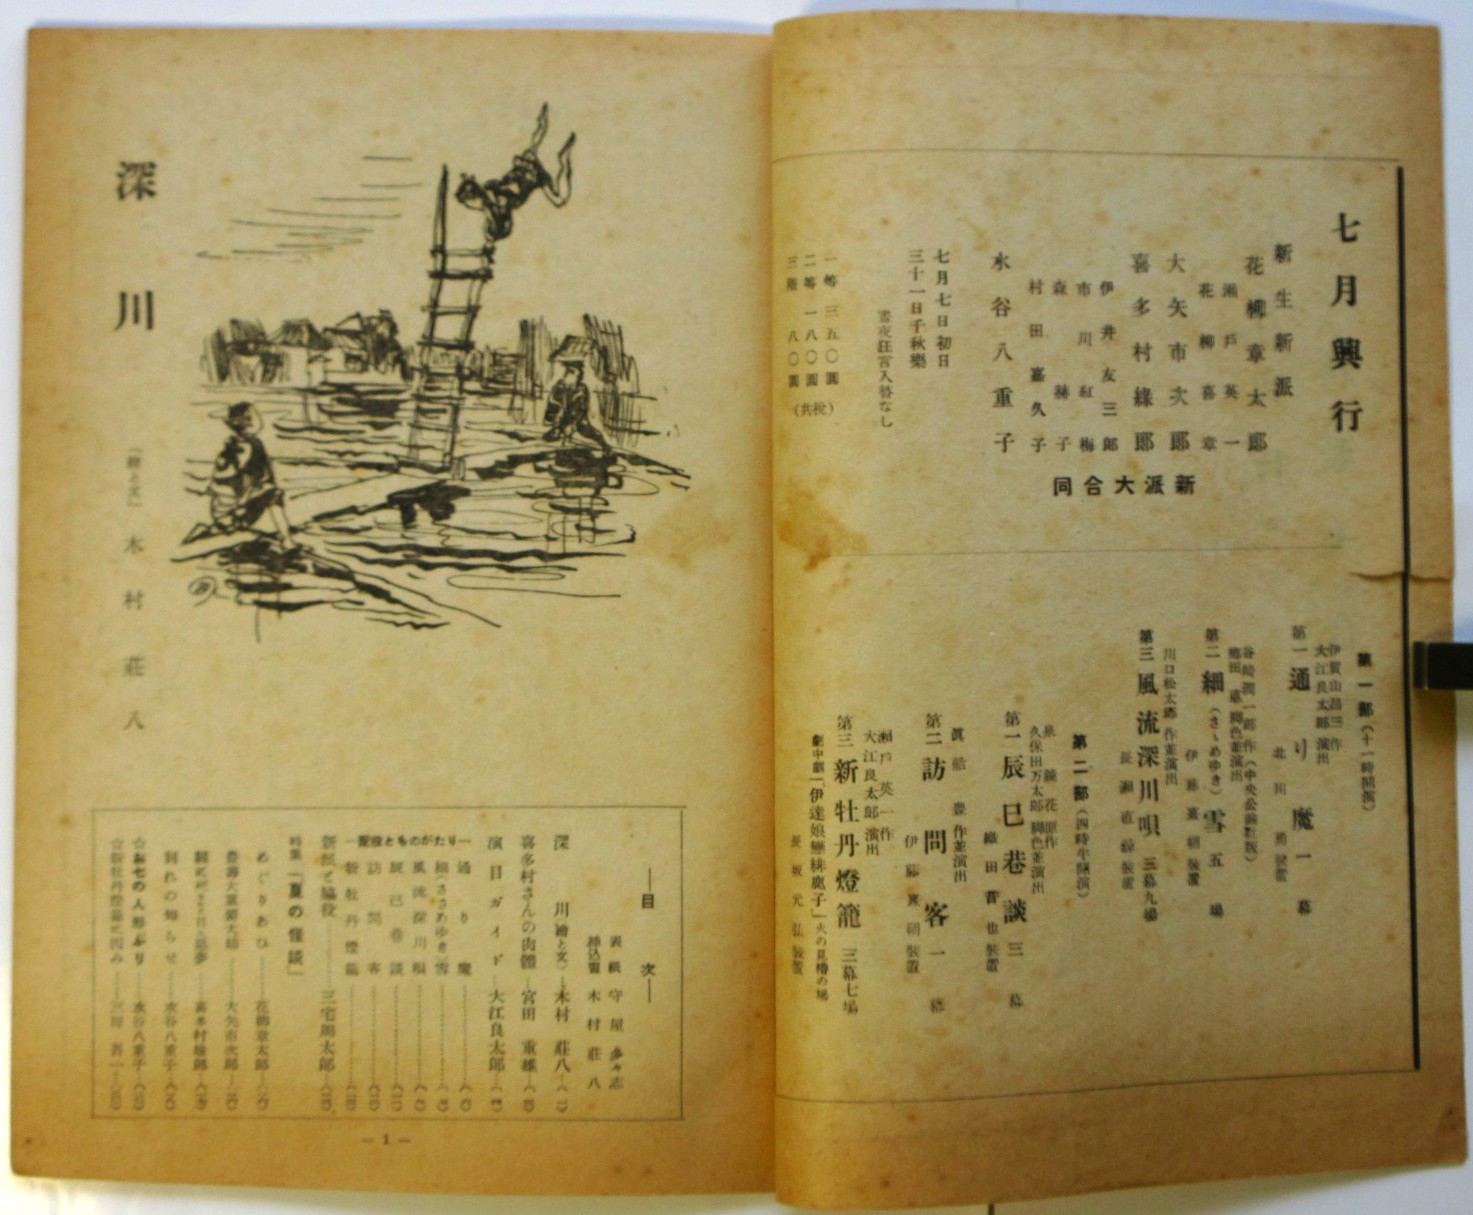 七月興行
新生新派
花柳章太郎
瀬戸英一
花柳喜章
大矢市次郎
喜多村緑郎
伊井友三郎
市川紅梅
森赫子
村田嘉久子
水谷八重子
新派大合同
七月七日初日
三十一日千秋樂
晝夜狂言入替なし
一等 三五〇圓
二等 一八〇圓
三階 八〇圓
(共税)
第一部(十一時開演)
伊賀山昌三 作
大江良太郎 演出
第一 通り魔 一幕
北田勇裝置
谷崎潤一郎 作(中央公論社版)
脚色並演出
第二 細雪(さゝめゆき) 五場
伊藤熹朔裝置
川口松太郎 作並演出
第三 風流深川唄 三幕九場
長瀬直諒裝置
第二部(四時半開演)
泉鏡花 原作
久保田万太郎 脚色並演出
第一 辰巳巷談 三幕
織田音也裝置
眞船豊 作並演出
第二 訪問客 一幕
伊藤熹朔裝置
瀬戸英一 作
大江良太郎 演出
第三 新牡丹燈籠 三幕七場
劇中劇「伊達娘戀緋鹿子」火の見櫓の場
長坂元弘裝置
深川
「繪と文」 木村莊八
—目次—
表紙 守屋多々志
挿込畫 木村莊八
深川(繪と文)—木村莊八—(1)
喜多村さんの肉體—宮田重雄
演目ガイド—大江良太郎
—配役とものがたり—
通り魔
細雪(ささめゆき)
風流深川唄
辰巳巷談
訪問客
新牡丹燈籠
新派と脇役 三宅周太郎
特集「夏の怪談」
めぐりあひ 花柳章太郎
大矢市次郎
喜多村緑郎
別れの知らせ 水谷八重子
☆お七の人形ぶり 水谷八重子
— 1 —